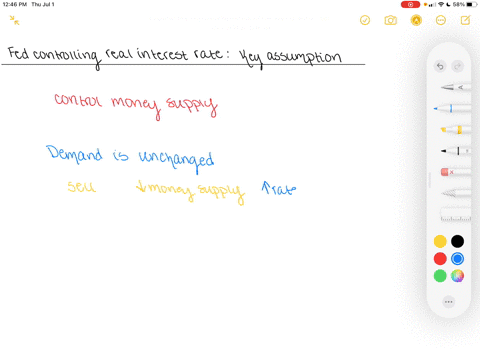 12:46 PM Thu Jul 1
58%
Fed controlling real interest rate: Key assumption
control money supply
Demand is unchanged
sell ↓money supply ↑rate